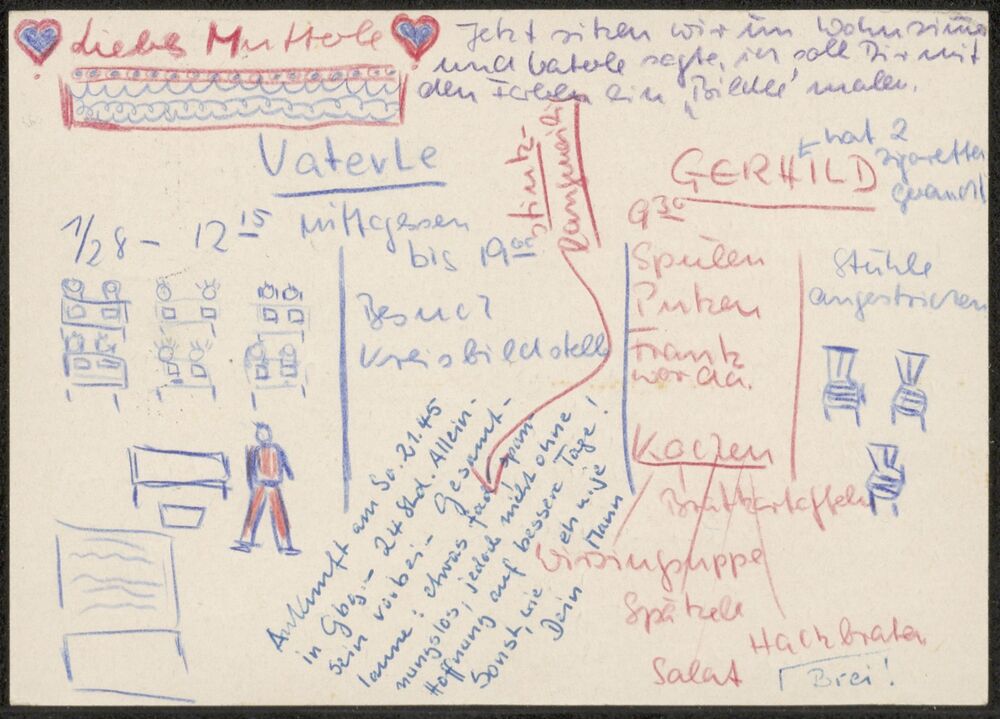 Liebes Mutterle
Jetzt sitzen wir im Wohnzimmer
und Vaterle sagte, ich soll Dir mit
den Farben ein „Bildle" malen.
Vaterle
1/28 – 12 15 Mittagessen
bis 19 00
Besuch
Kreisbildstelle
GERHILD
hat 2
Zigaretten
geraucht
9 30
Spülen
Putzen
Frank
Kochen
Bratkartoffeln
Spätzle
Hackbraten
Salat
Brei!
Stühle
angestrichen
Ankunft am So. 21.45
in Gbg. – 24 Std. Allein-
sein vorbei – Gesamt-
laune: etwas fad, span-
nungslos, jedoch nicht ohne
Hoffnung auf bessere Tage!
Sonst, wie eh und je
Dein Mann